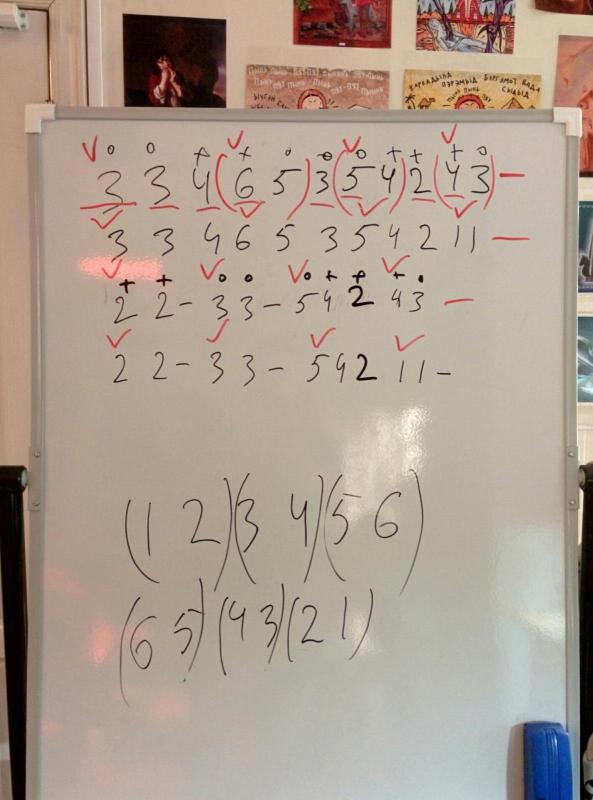 КАРКАДЫЛА ПЭРЭМЫД БЭРГЭМОТ ВАДА СЫДЫД
3 3 4 (6 5) 3 (5 4) 2 (4 3) –
3 3 4 6 5 3 5 4 2 1 1 –
2 2 – 3 3 – 5 4 2 4 3 –
2 2 – 3 3 – 5 4 2 1 1 –
(1 2) (3 4) (5 6)
(6 5) (4 3) (2 1)